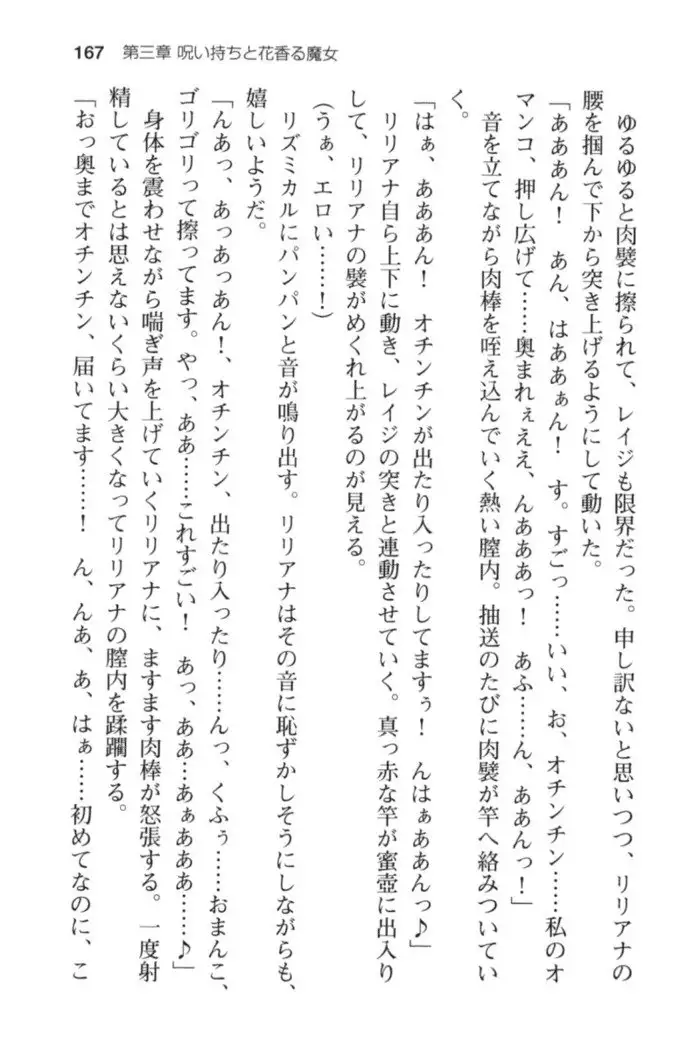 167 第三章 呪い持ちと花香る魔女
ゆるゆると肉襞に擦られて、レイジも限界だった。申し訳ないと思いつつ、リリアナの
腰を掴んで下から突き上げるようにして動いた。
「あああん！　あん、はああぁん！　す。すごっ……いい、お、オチンチン……私のオ
マンコ、押し広げて……奥まれぇええ、んあああっ！　あふ……ん、ああんっ！」
音を立てながら肉棒を咥え込んでいく熱い膣内。抽送のたびに肉襞が竿へ絡みついてい
く。
「はぁ、あああん！　オチンチンが出たり入ったりしてますぅ！　んはぁああんっ♪」
リリアナ自ら上下に動き、レイジの突きと連動させていく。真っ赤な竿が蜜壺に出入り
して、リリアナの襞がめくれ上がるのが見える。
（うぁ、エロい……！）
リズミカルにパンパンと音が鳴り出す。リリアナはその音に恥ずかしそうにしながらも、
嬉しいようだ。
「んあっ、あっあっあん！、オチンチン、出たり入ったり……んっ、くふぅ……おまんこ、
ゴリゴリって擦ってます。やっ、ああ……これすごい！　あっ、ああ…あぁあああ……♪」
身体を震わせながら喘ぎ声を上げていくリリアナに、ますます肉棒が怒張する。一度射
精しているとは思えないくらい大きくなってリリアナの膣内を蹂躙する。
「おっ奥までオチンチン、届いてます……！　ん、んあ、あ、はぁ……初めてなのに、こ